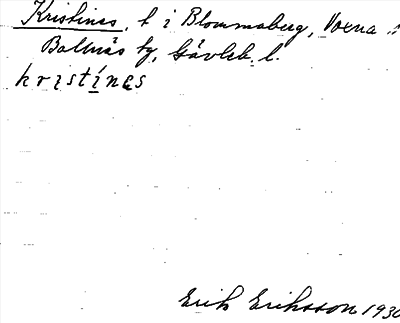 Kristines, t i Blommaberg, Voxna :
Bollnäs tg, Gävleb. l.
kristínes
Erik Eriksson 1930